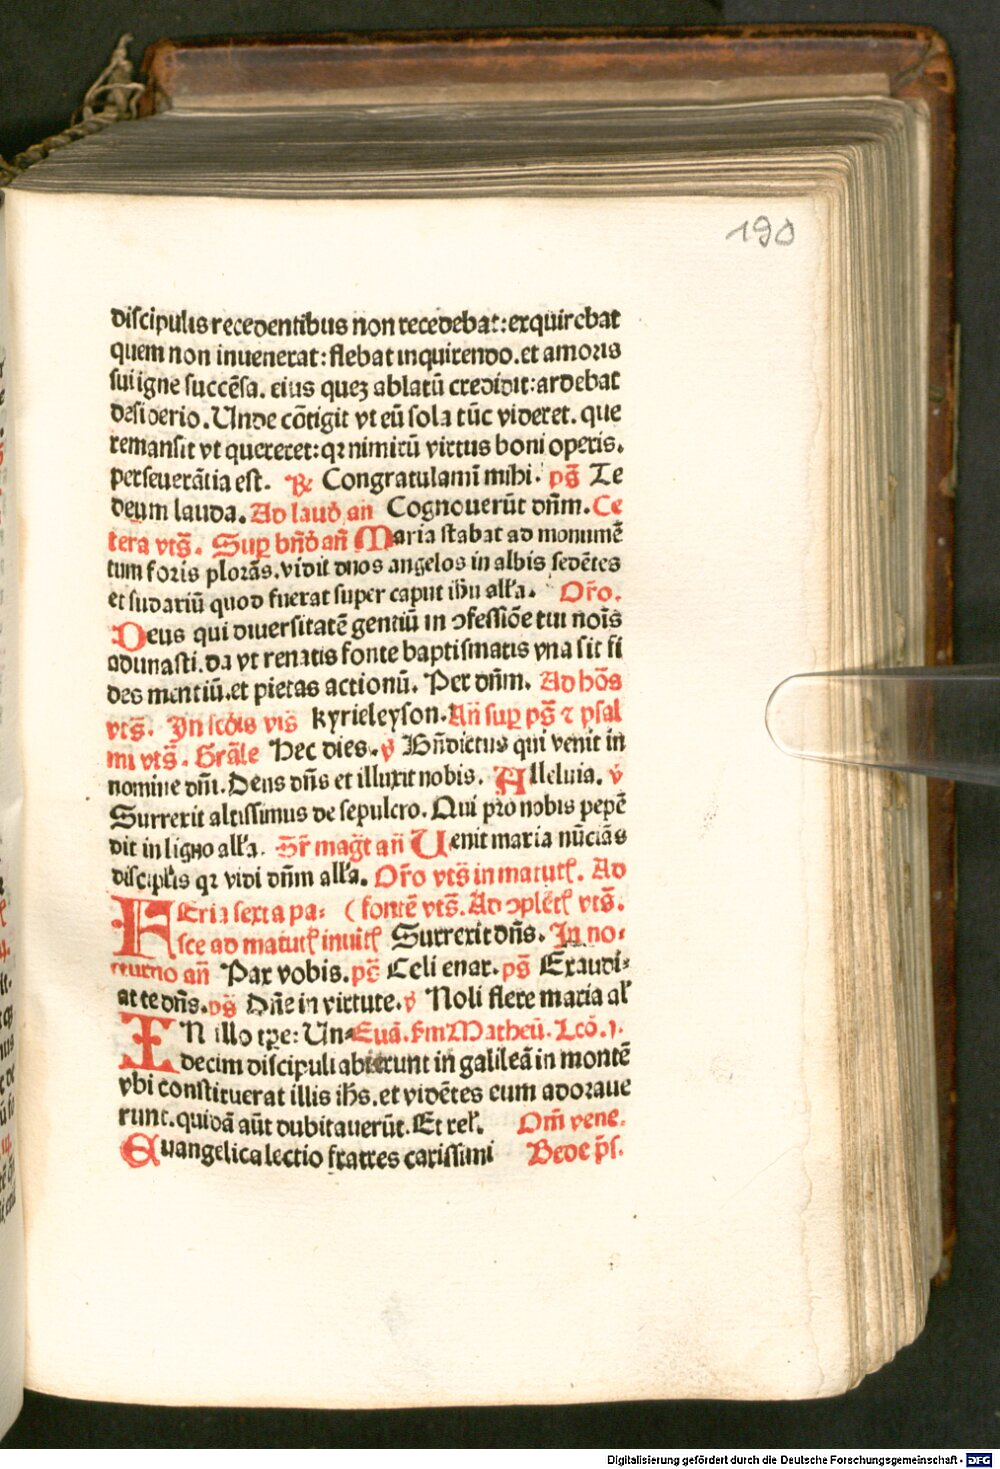 190
discipulis recedentibus non recedebat: exquirebat
quem non inuenerat: flebat inquirendo. et amoris
sui igne succēsa. eius queʒ ablatū credidit: ardebat
desiderio. Unde cōtigit vt eū sola tūc videret. que
remansit vt quereret: qꝛ nimirū virtus boni operis.
perseuerātia est. ℟ Congratulamī mihi. pẜ Te
deum lauda. Ad laud̄ an̄ Cognouerūt dn̄m. Ce
tera vtẜ. Suꝑ bn̄d̄ an̄ Maria stabat ad monumē
tum foris plorās. vidit duos angelos in albis sedētes
et sudariū quod fuerat super caput ih̄u all'a. Or̄o.
Deus qui diuersitatē gentiū in ↄfessiōe tui noīs
adunasti. da vt renatis fonte baptismatis vna sit fi
des mentiū. et pietas actionū. Per dn̄m. Ad hōs
vtẜ. In scd̄is vīs kyrieleyson. An̄ suꝑ pẜ ⁊ psal
mi vtẜ. Grāle Hec dies. ℣ Bn̄dictus qui venit in
nomine dn̄i. Deus dn̄s et illuxit nobis. Alleluia. ℣
Surrexit altissimus de sepulcro. Qui pro nobis pepē
dit in ligno all'a. Sr̄ mag̅t an̄ Uenit maria nūciās
discipl'is qꝛ vidi dn̄m all'a. Or̄o vtẜ in matutꝭ. Ad
Feria sexta pa⸗ ( fontē vtẜ. Ad ↄplētꝭ vtẜ.
sce ad matutꝭ inuitꝭ Surrexit dn̄s. In no⸗
cturno an̄ Pax vobis. pc̄ Celi enar. pẜ Exaudi⸗
at te dn̄s. pẜ Dn̄e in virtute. ℣ Noli flere maria al'
IN illo tꝑe: Un⸗ Euā. ẜm Matheū. Lcō. j.
decim discipuli abierunt in galileā in montē
vbi constituerat illis ih̄s. et vidētes eum adoraue
runt. quidā aūt dubitauerūt. Et rel'. Om̄ vene.
Euangelica lectio fratres carissimi Bede p̄s.
Digitalisierung gefördert durch die Deutsche Forschungsgemeinschaft - DFG